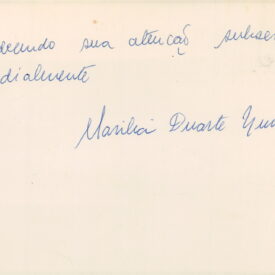 decendo sua atenção subscr
dialmente
Marilia Duarte Nun